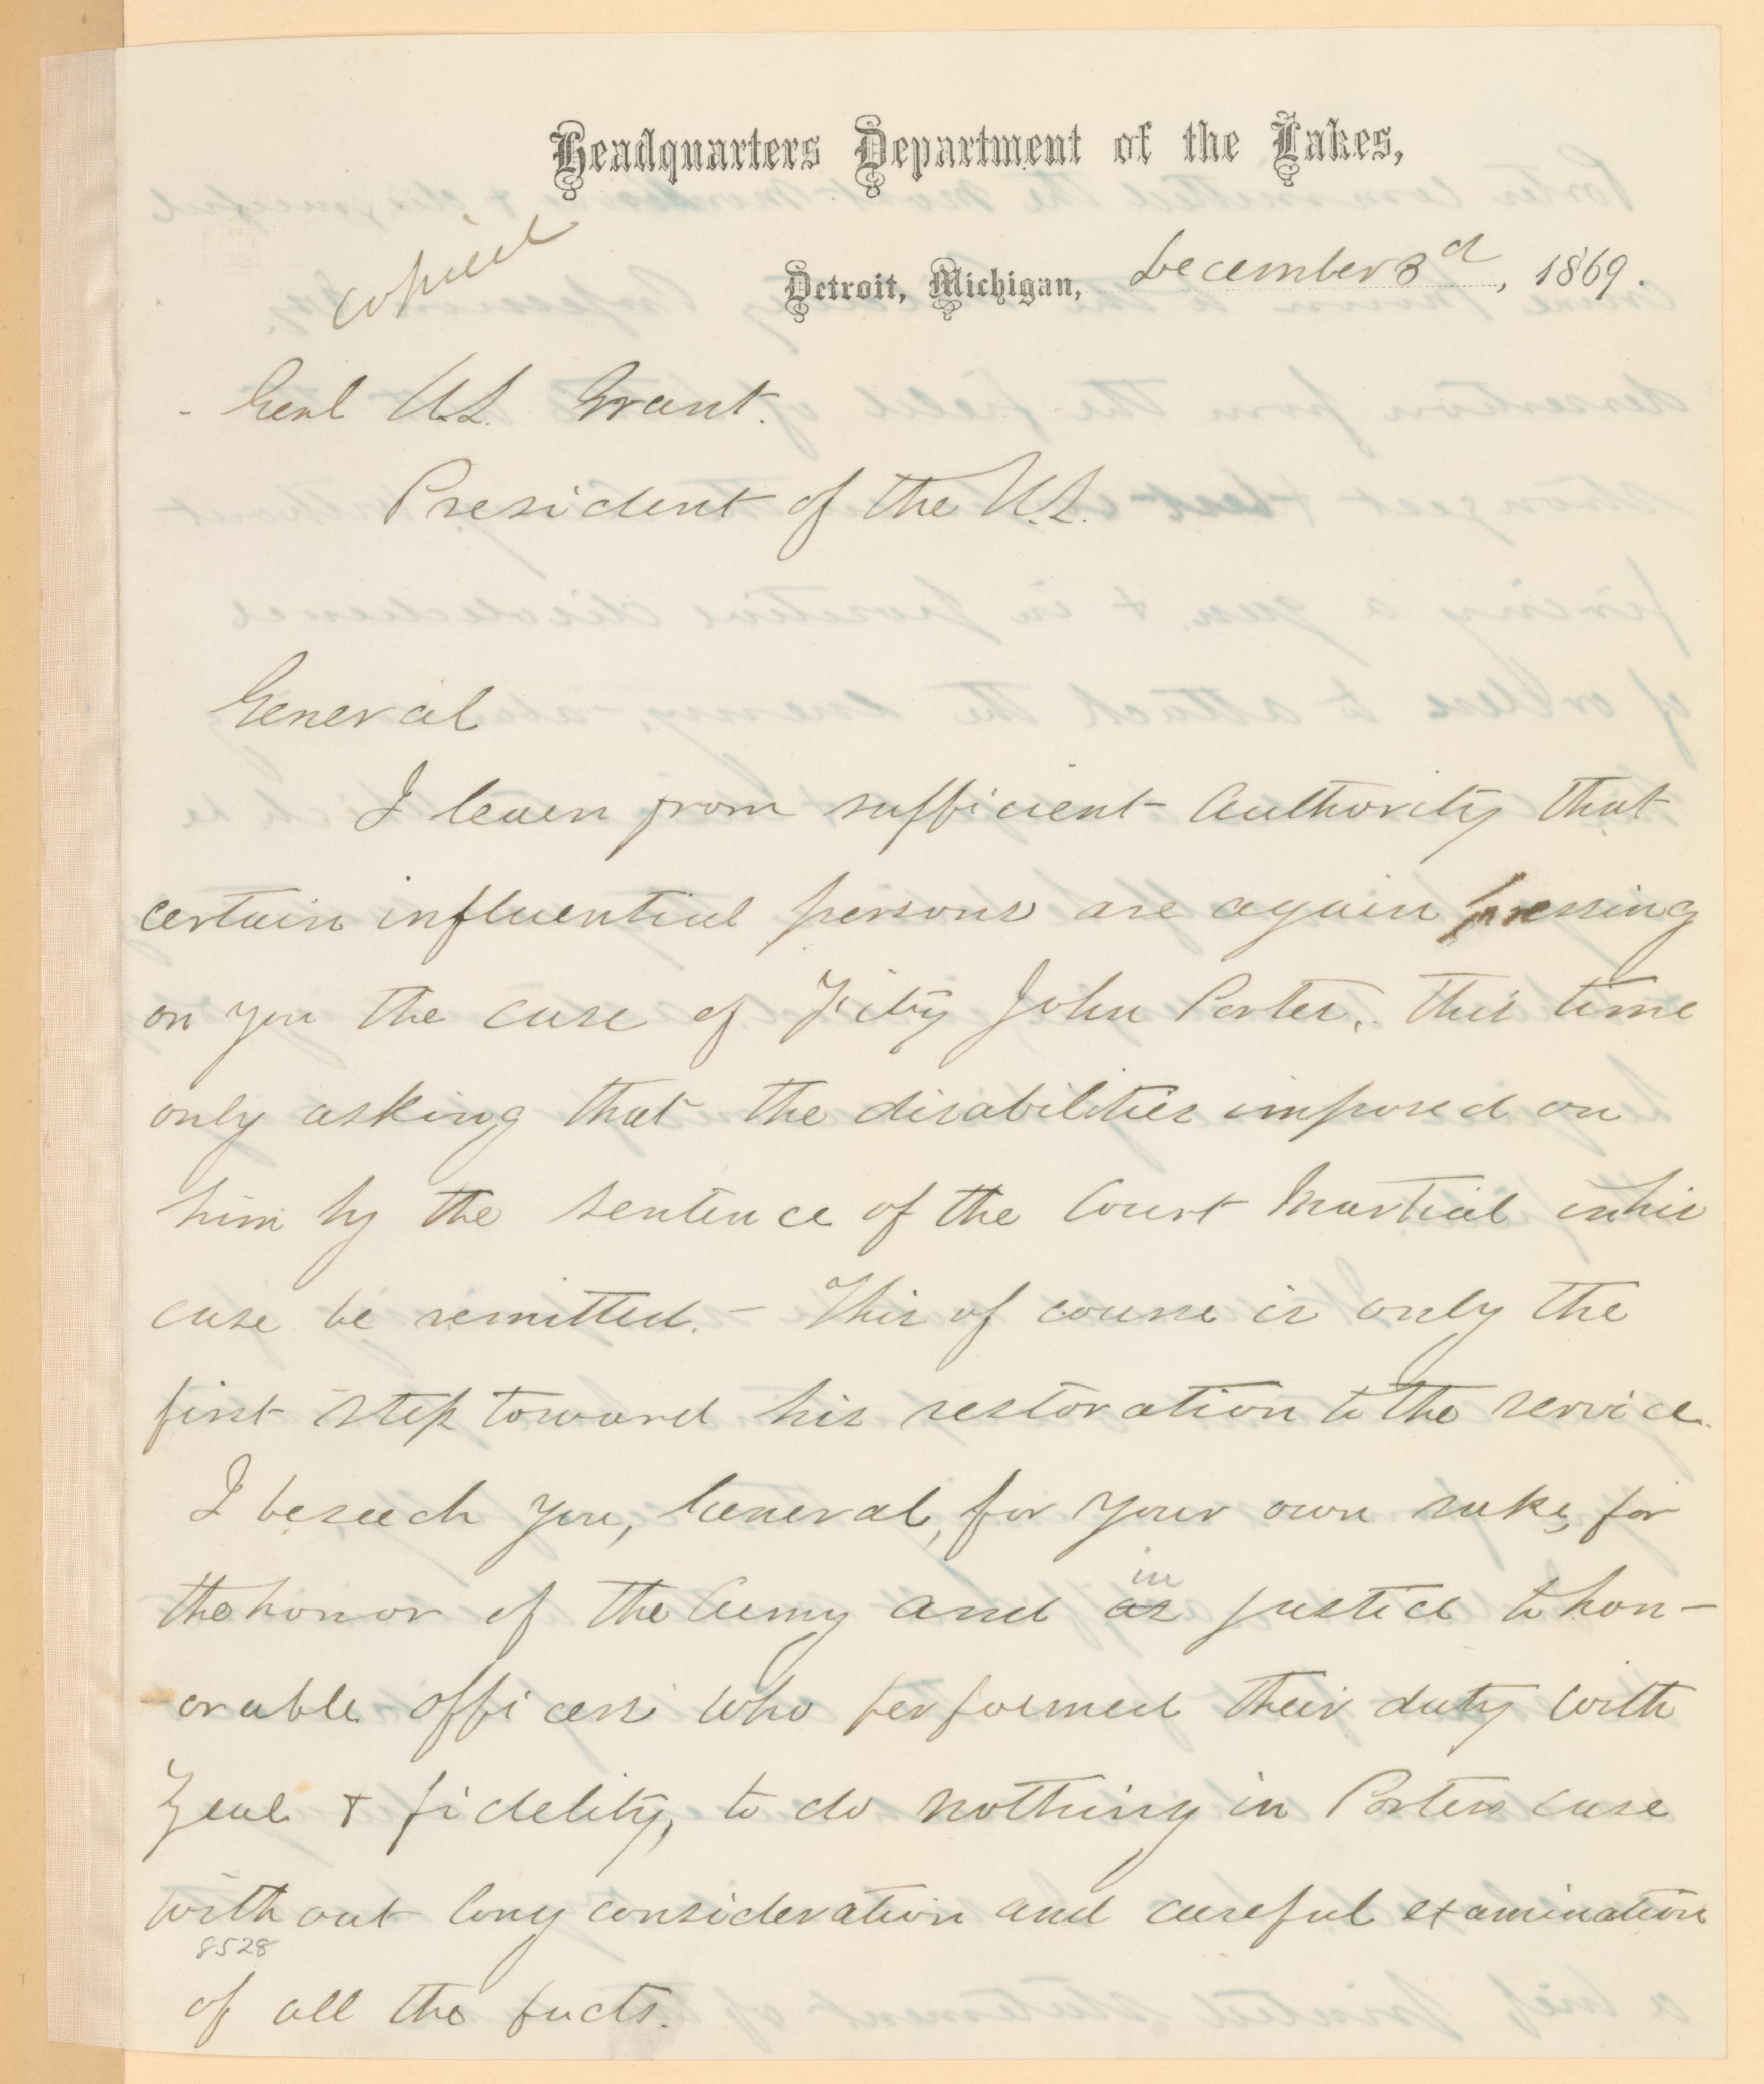 Headquarters Department of the Lakes,
copied
Detroit, Michigan, December 3d, 1869.
- Genl U.S. Grant.
President of the U.S.
General
I learn from sufficient authority that
certain influential persons are again pressing
on you the case of Fitz John Porter, this time
only asking that the disabilities imposed on
him by the sentence of the Court Martial in his
case be remitted. - This of course is only the
first step toward his restoration to the service.
I beseech you, General, for your own sake, for
in
the honor of the Army and as justice to hon-
orable officers who performed their duty with
zeal & fidelity, to do nothing in Porters case
without long consideration and careful examination
8528
of all the facts.